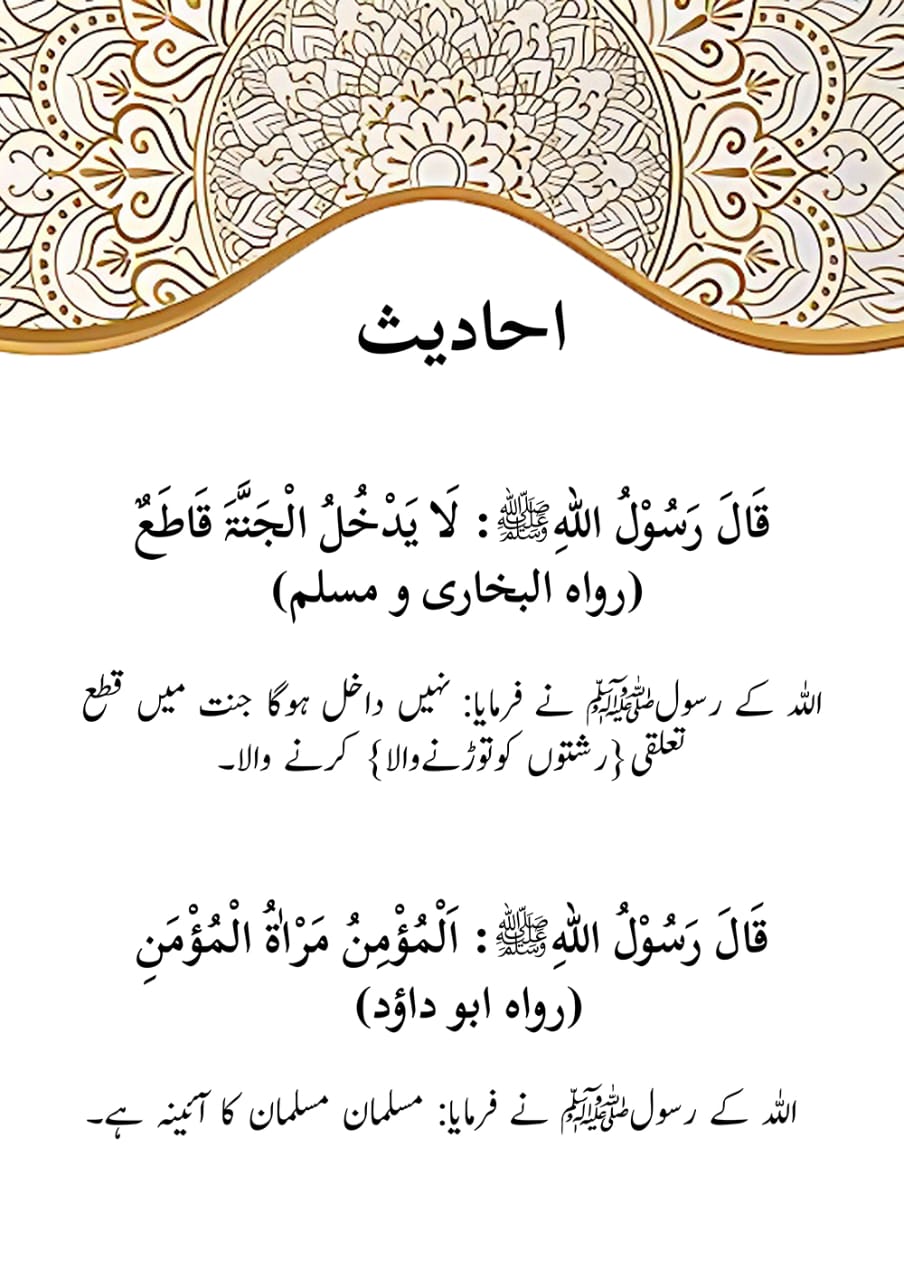 احادیث
قَالَ رَسُوْلُ اللهِﷺ: لَا يَدْخُلُ الْجَنَّۃَ قَاطَعٌ
(رواہ البخاری و مسلم)
اللہ کے رسولﷺ نے فرمایا: نہیں داخل ہوگا جنت میں قطع
تعلقی{رشتوں کوتوڑنےوالا} کرنے والا۔
قَالَ رَسُوْلُ اللهِﷺ: اَلْمُؤْمِنُ مَرْاٰۃُ الْمُؤْمَنِ
(رواہ ابو داؤد)
اللہ کے رسولﷺ نے فرمایا: مسلمان مسلمان کا آئینہ ہے۔